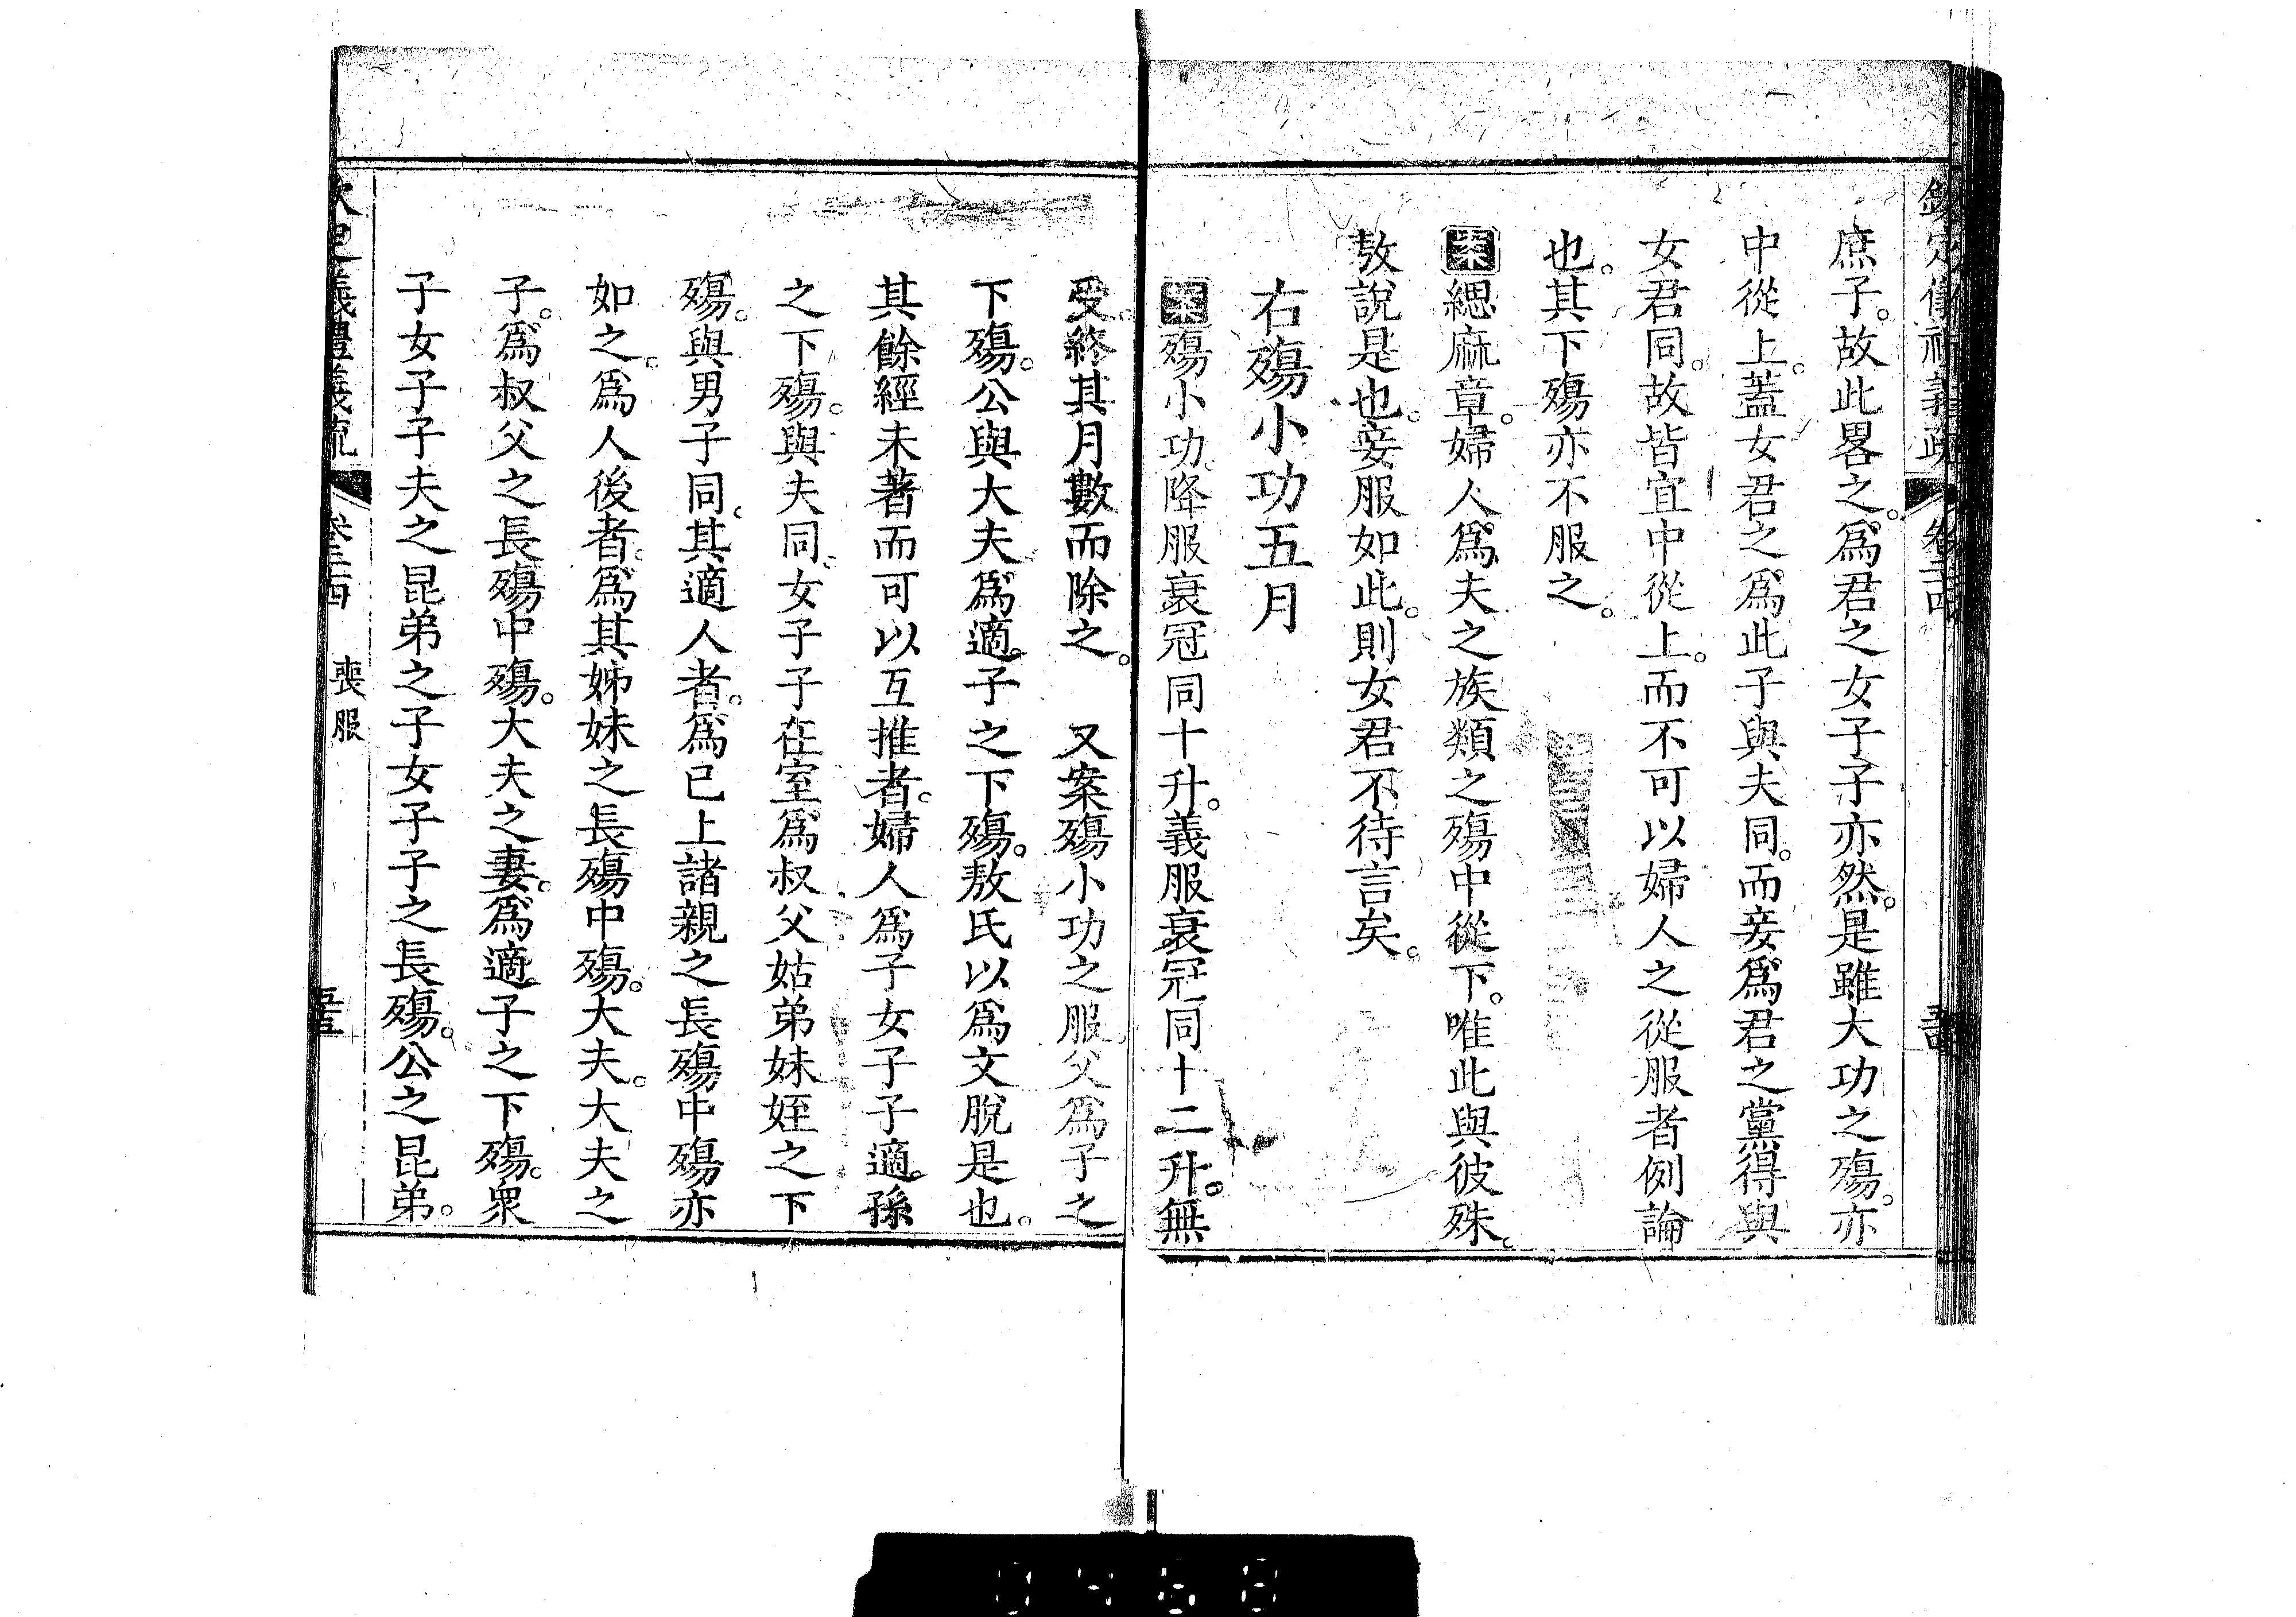 欽定儀禮義疏 卷二四
庶子。故此畧之。爲君之女子子亦然。是雖大功之殤。亦
中從上。蓋女君之爲此子與夫同。而妾爲君之黨得與
女君同。故皆宜中從上。而不可以婦人之從服者例論
也。其下殤亦不服之。
案緦麻章。婦人爲夫之族類之殤中從下。唯此與彼殊。
敖說是也。妾服如此。則女君不待言矣。
右殤小功五月
案殤小功。降服衰冠同十升。義服衰冠同十二升。無
受。終其月數而除之。 又案殤小功之服。父爲子之
下殤。公與大夫爲適子之下殤。敖氏以爲文脫是也。
其餘經未著而可以互推者。婦人爲子女子子適孫
之下殤。與夫同。女子子在室。爲叔父姑弟妹姪之下
殤。與男子同。其適人者。爲已上諸親之長殤中殤亦
如之。爲人後者。爲其姊妹之長殤中殤。大夫。大夫之
子。爲叔父之長殤中殤。大夫之妻。爲適子之下殤。衆
子女子子夫之昆弟之子女子子之長殤。公之昆弟。
欽定儀禮義疏 卷二四 喪服